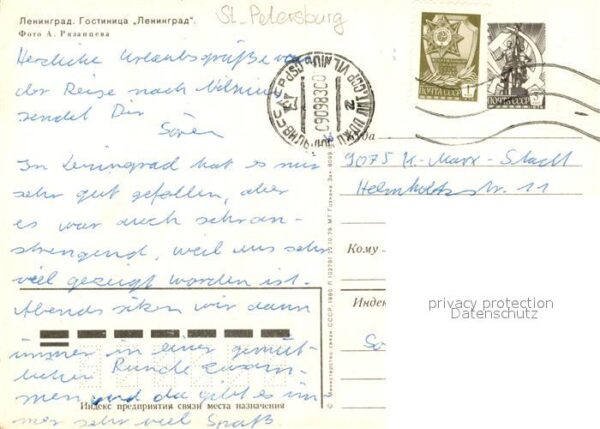 Ленинград. Гостиница „Ленинград".
Фото А. Рязанцева
St. Petersburg
Herzliche Urlaubsgrüße von
der Reise nach
sendet Dir
Sören
In Leningrad hat es mir
sehr gut gefallen, aber
es war auch sehr an-
strengend, weil uns sehr
viel gezeigt worden ist.
Abends sitzen wir dann
immer in einer gemüt-
lichen Runde zusam-
men und da gibt es im
mer sehr viel Spaß.
Индекс предприятия связи места назначения
© Министерство связи СССР, 1980
ПОЧТА СССР
ПОЧТА СССР
Куда
9075 K.-Marx-Stadt
Helmholtzstr. 11
Кому
Индек
privacy protection
Datenschutz